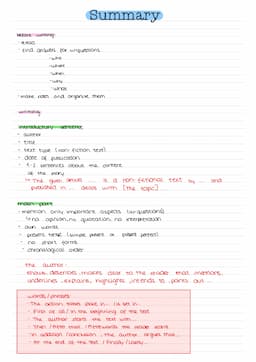 Summary
before writing
· read
· find answers for w-questions
-who
-what
-when
-why
-where
· make notes and organize them
writing
introductory sentence
· author
· title
· text type (non fiction text)
· date of publication
· 1-2 sentences about the content
of the story
"The given article ... is a non-fictional text by ... and
published in ... deals with [the topic]
main part
· mention only important aspects (w-questions)
no opinion, no quotation, no interpretation
· own words
· present tense (simple present or present perfect)
· no short forms
· chronological order
The author
shows, describes, makes clear to the reader that, mentions,
underlines, explains, highlights, intends to, points out ...
words/phrases:
· The action takes place in... / is set in...
· First of all / In the beginning of the text
· The author starts the text with...
· Then / After that / Afterwards the reader learns...
· In addition / conclusion, the author argues that...
· At the end of the text / Finally / Lastly...